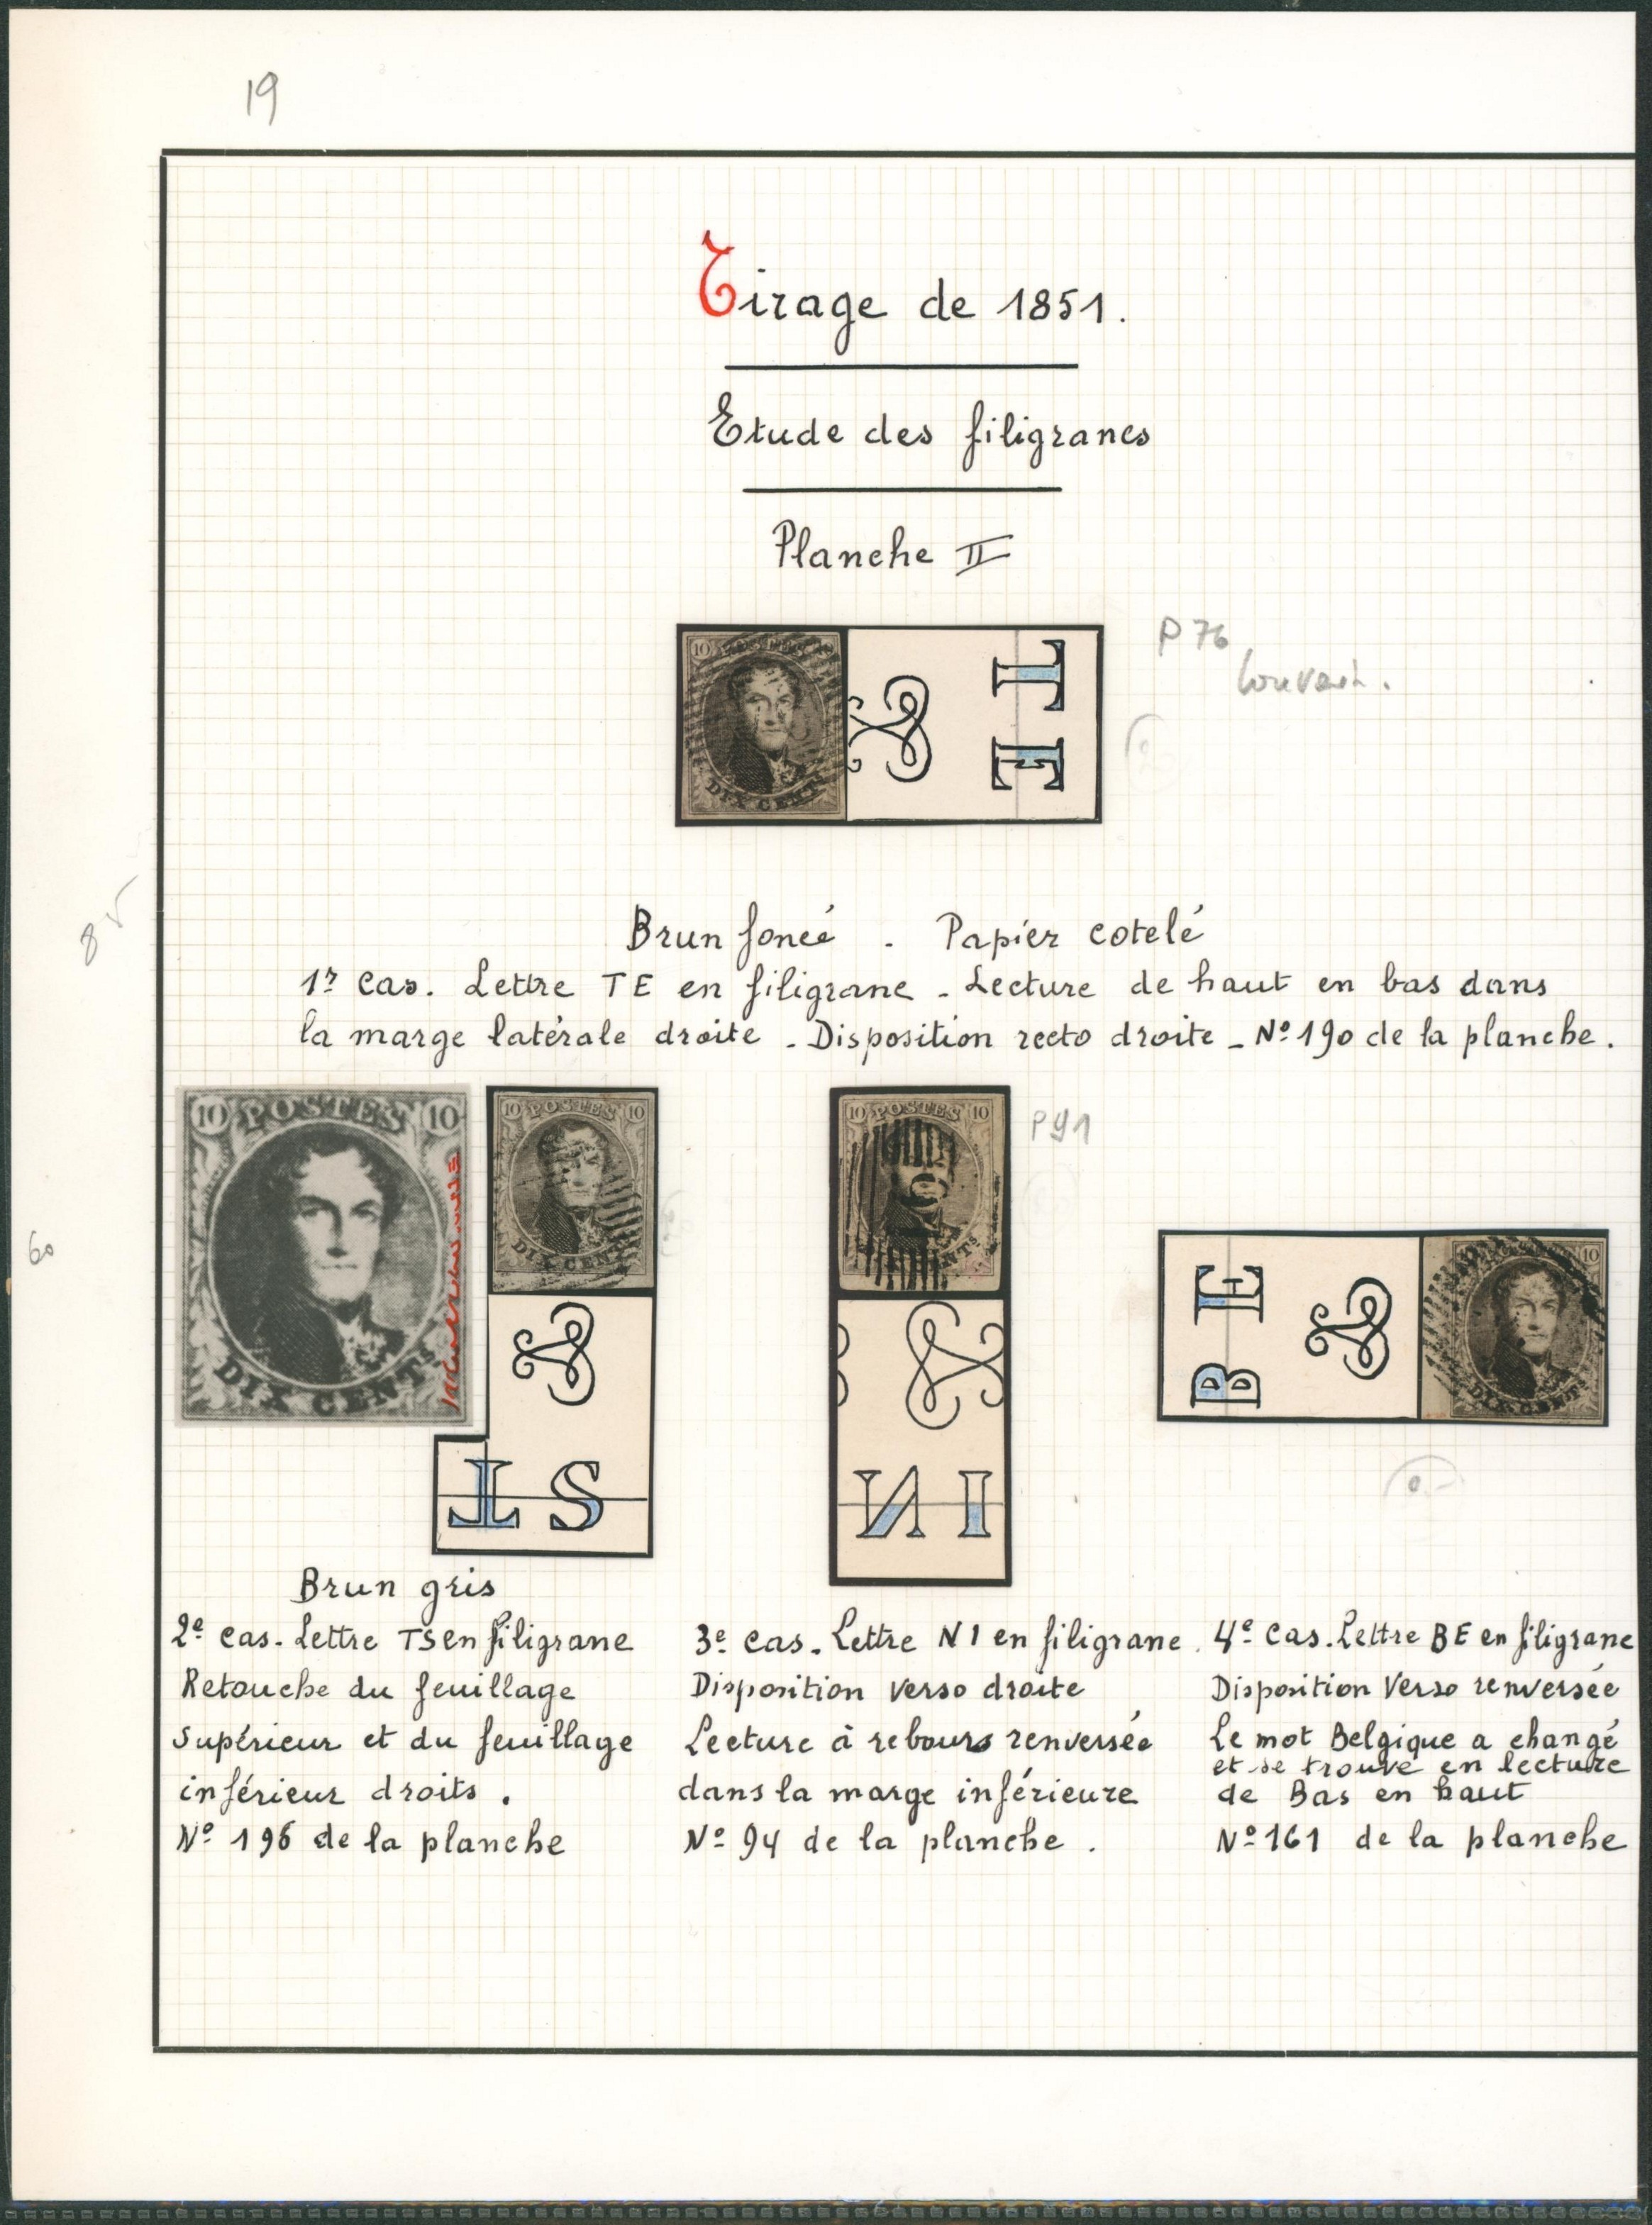 19
Tirage de 1851.
Etude des filigranes
Planche II
10
DIX CENTS
T E
P 76
Brun foncé . Papier cotelé
1r cas. Lettre TE en filigrane - Lecture de haut en bas dans
la marge latérale droite - Disposition recto droite - Nº 190 de la planche.
85
60
10 POSTES 10
DIX CENTS
10 POSTES 10
DIX CENTS
TS
10 POSTES 10
CENTS
P 91
NI
BE
10
DIX CENTS
Brun gris
2e cas. Lettre TS en filigrane
Retouche du feuillage
Supérieur et du feuillage
inférieur droits .
Nº 196 de la planche
3e cas. Lettre NI en filigrane.
Disposition verso droite
Lecture à rebours renversée
dans la marge inférieure
Nº 94 de la planche .
4e cas. Lettre BE en filigrane
Disposition Verso renversée
Le mot Belgique a changé
et se trouve en lecture
de Bas en haut
Nº 161 de la planche